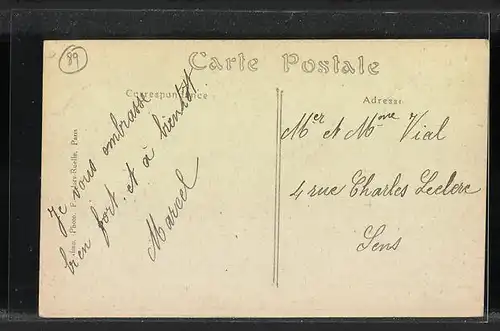 89
Carte Postale
Correspondance
Adresse
Je vous embrasse
bien fort et à bientôt
Marcel
Mer et Mme Vial
4 rue Charles Leclerc
Sens
Phot.
Paris